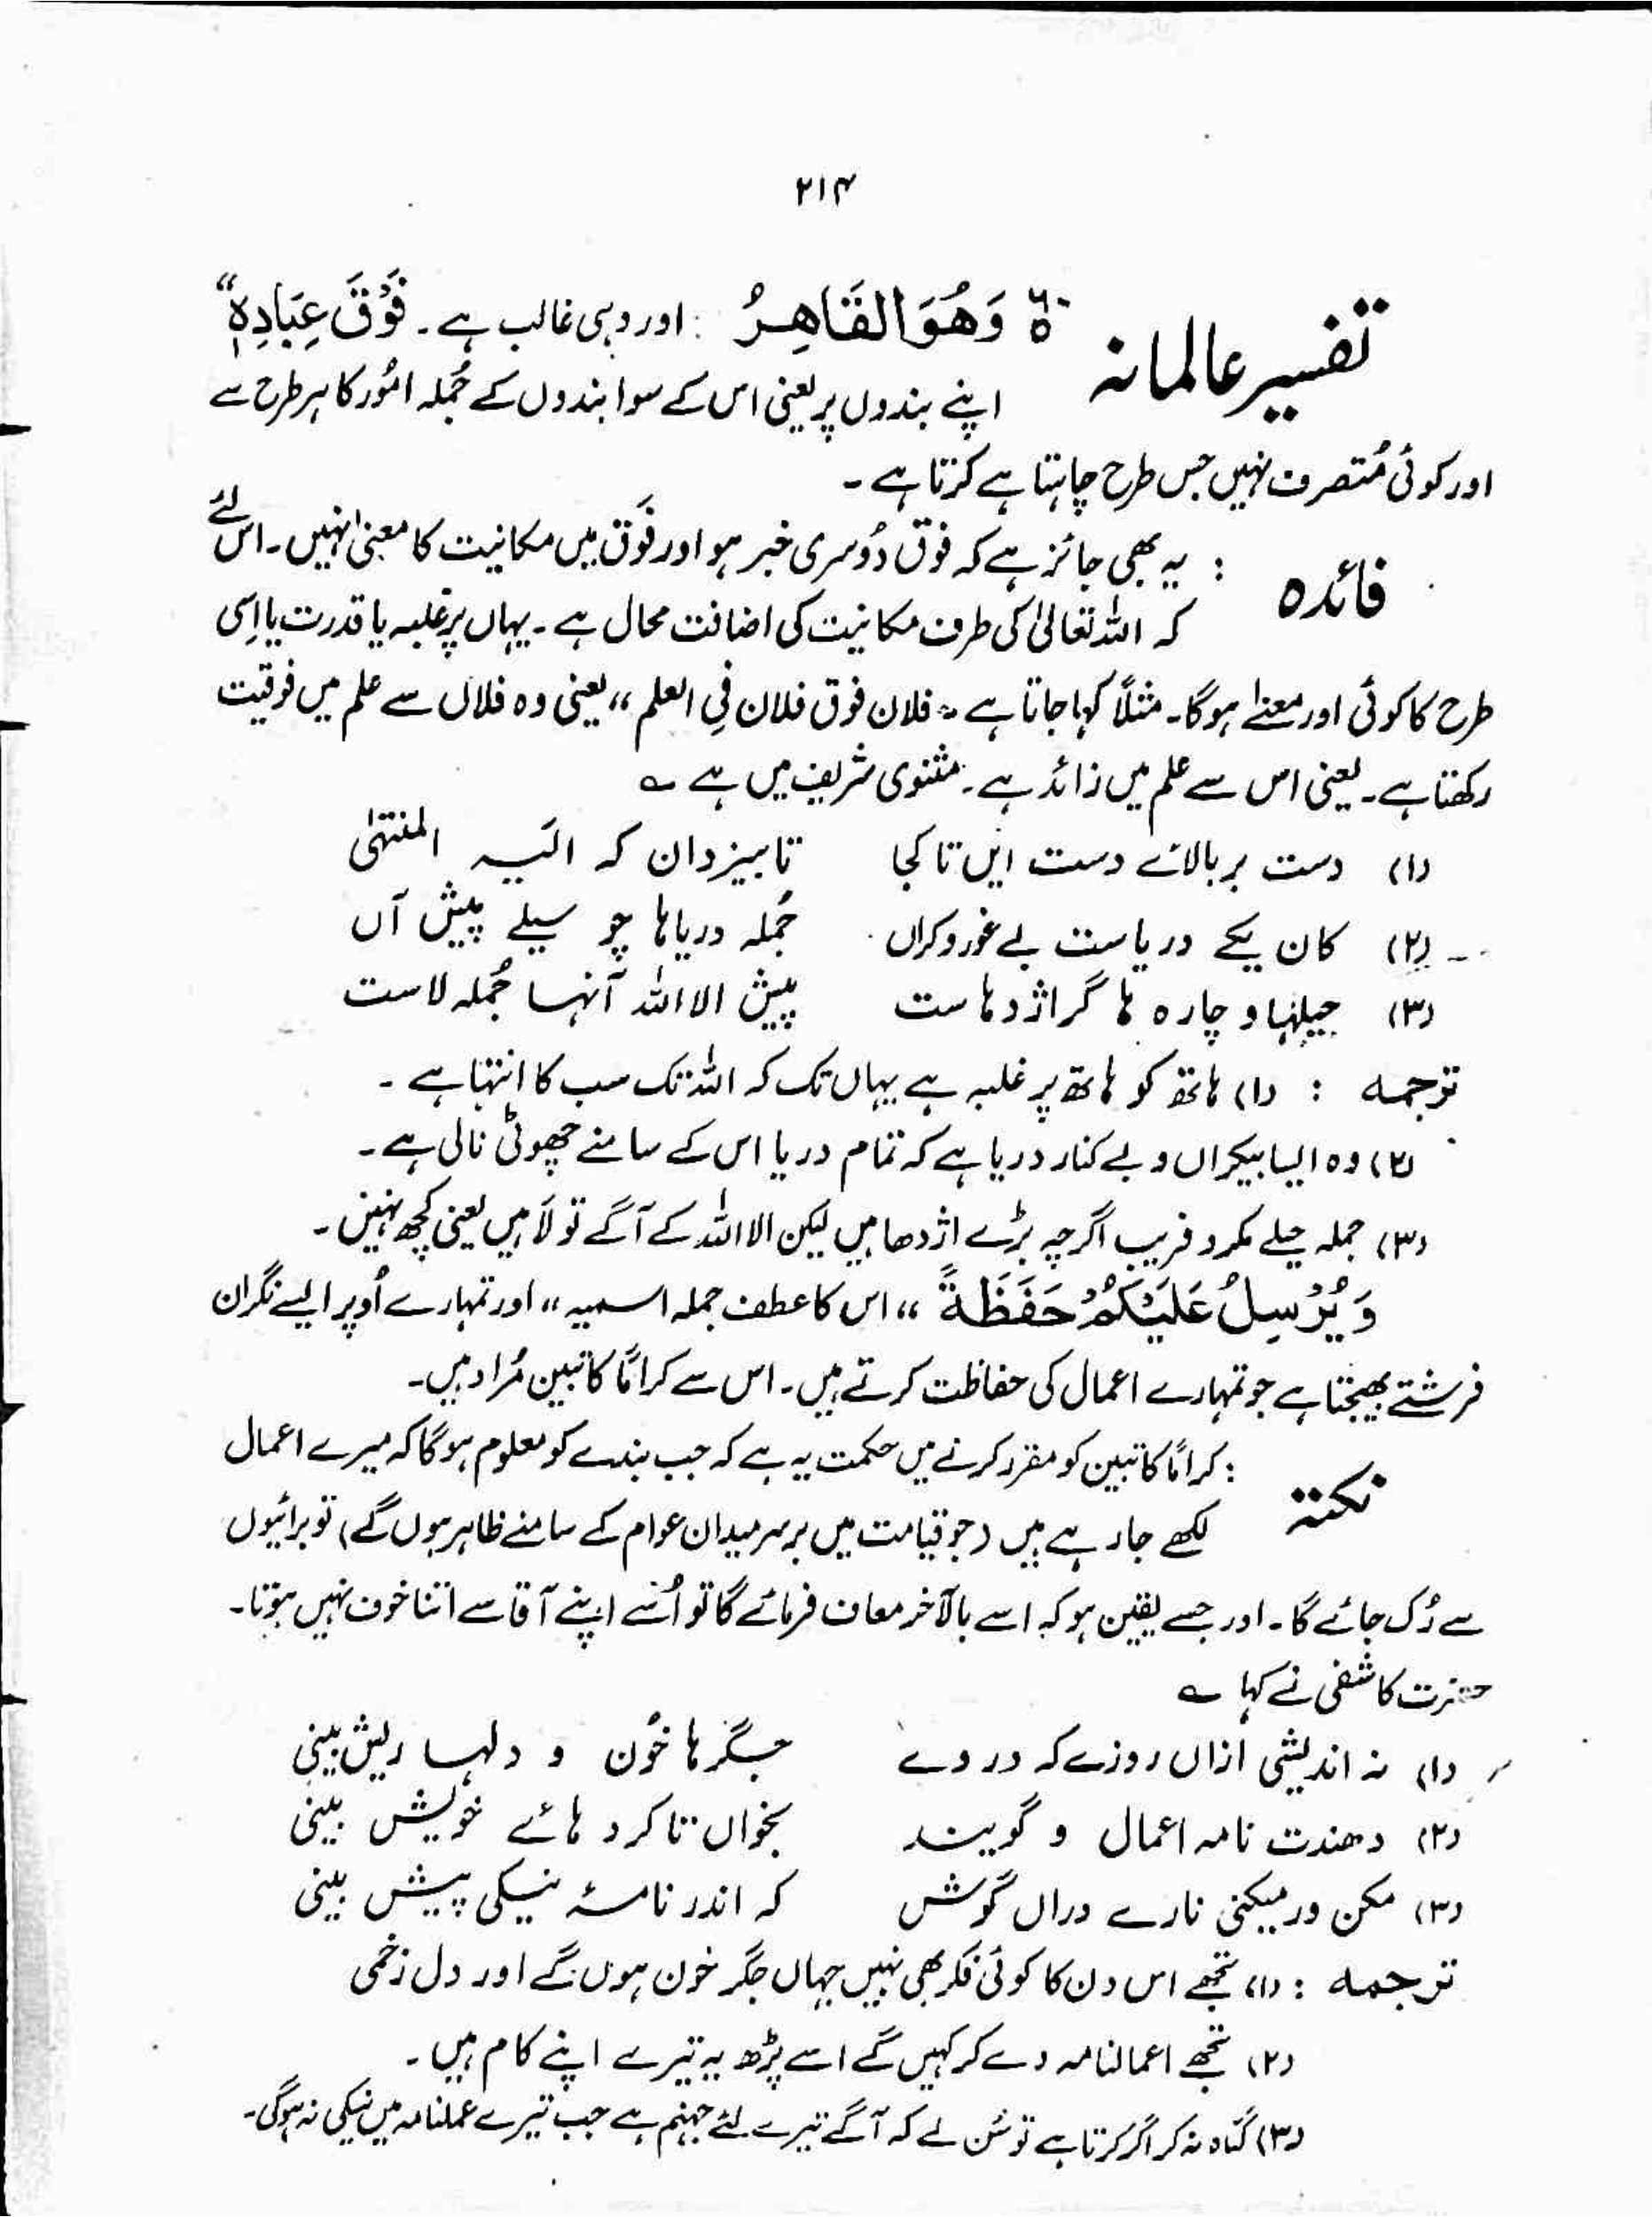 ۲۱۴
تفسیر عالمانہ وَهُوَ الْقَاهِرُ : اور وہی غالب ہے۔ فَوْقَ عِبَادِهٖ"
اپنے بندوں پر یعنی اس کے سوا بندوں کے جُملہ امُور کا ہر طرح سے
اور کوئی مُتصرف نہیں جس طرح چاہتا ہے کرتا ہے۔
فائدہ : یہ بھی جائز ہے کہ فوق دُوسری خبر ہو اور فَوق میں مکانیت کا معنیٰ نہیں۔ اس لئے
کہ اللہ تعالیٰ کی طرف مکانیت کی اضافت محال ہے۔ یہاں پر غلبہ یا قدرت یا اِسی
طرح کا کوئی اور معنےٰ ہوگا۔ مثلاً کہا جاتا ہے "فلان فوق فلان فِی العلم" یعنی وہ فلاں سے علم میں فوقیت
رکھتا ہے۔ یعنی اس سے علم میں زائد ہے۔ مثنوی شریف میں ہے ؎
(۱) دست بر بالائے دست ایں تا کجا تا بیزدان کہ الَیہ المنتہٰی
(۲) کان یکے دریاست بے غور و کراں جُملہ دریاہا چو سیلے پیش آں
(۳) حیلہا و چارہ ہا گر اژدہاست پیش الا اللہ آنہا جُملہ لاست
ترجمہ : (۱) ہاتھ کو ہاتھ پر غلبہ ہے یہاں تک کہ اللہ تک سب کا انتہا ہے۔
(۲) وہ ایسا بیکراں و بے کنار دریا ہے کہ تمام دریا اس کے سامنے چھوٹی نالی ہے۔
(۳) جملہ حیلے مکر و فریب اگرچہ بڑے اژدھا ہیں لیکن الا اللہ کے آگے تو لَا ہیں یعنی کچھ نہیں۔
وَ یُرْسِلُ عَلَیْکُمْ حَفَظَةً " اس کا عطف جملہ اسمیہ " اور تمہارے اُوپر ایسے نگران
فرشتے بھیجتا ہے جو تمہارے اعمال کی حفاظت کرتے ہیں۔ اس سے کراماً کاتبین مُراد ہیں۔
نکتہ : کراماً کاتبین کو مقرر کرنے میں حکمت یہ ہے کہ جب بندے کو معلوم ہوگا کہ میرے اعمال
لکھے جا رہے ہیں (جو قیامت میں برسر میدان عوام کے سامنے ظاہر ہوں گے) تو برائیوں
سے رُک جائے گا۔ اور جسے یقین ہو کہ اسے بالآخر معاف فرمائے گا تو اُسے اپنے آقا سے اتنا خوف نہیں ہوتا۔
حضرت کاشفی نے کہا ؎
(۱) نہ اندیشی ازاں روزے کہ در وے جگرہا خُون و دلہا ریش بینی
(۲) دھندت نامہ اعمال و گویند بخواں تا کردہائے خویش بینی
(۳) مکن ور میکنی نارے دراں گوش کہ اندر نامۂ نیکی پیش بینی
ترجمہ : (۱) تجھے اس دن کا کوئی فکر بھی نہیں جہاں جگر خون ہوں گے اور دل زخمی
(۲) تجھے اعمالنامہ دے کر کہیں گے اسے پڑھ یہ تیرے اپنے کام ہیں۔
(۳) گناہ نہ کر اگر کرتا ہے تو سُن لے کہ آگے تیرے لئے جہنم ہے جب تیرے عملنامہ میں نیکی نہ ہوگی۔